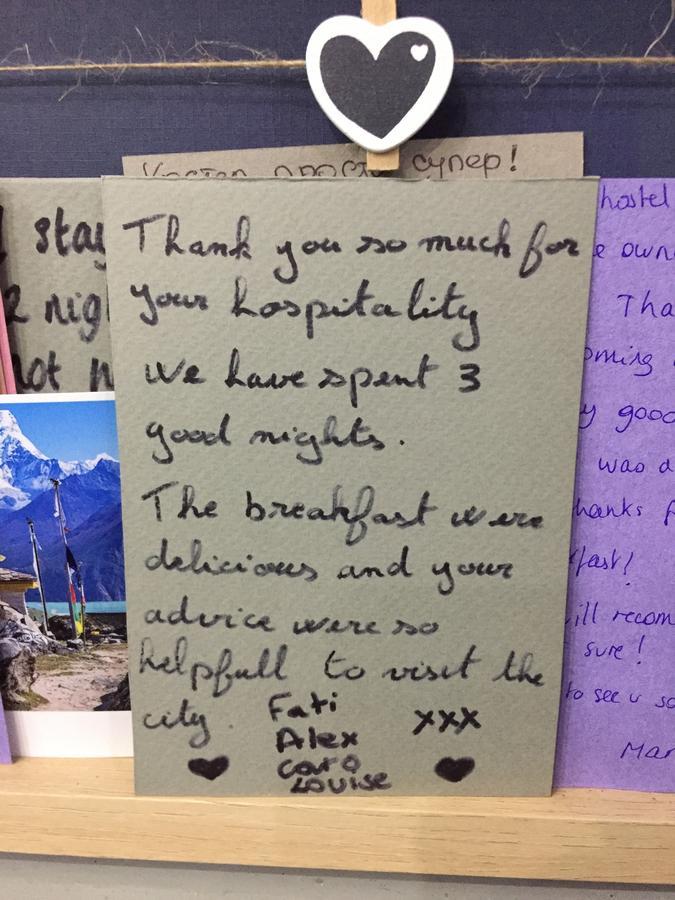 просто супер!
Thank you so much for
your hospitality
we have spent 3
good nights.
The breakfast were
delicious and your
advice were so
helpfull to visit the
city.
Fati
Alex
Caro
Louise
xxx
stay
2 nig
not n
hostel
e own
Tha
oming
y good
was a
hanks f
fast!
ill recom
sure!
to see u so
Mar